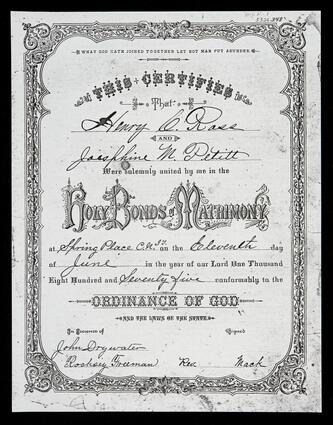 WHAT GOD HATH JOINED TOGETHER LET NOT MAN PUT ASUNDER.
THIS CERTIFIES
That
Henry C. Ross
AND
Josephine M. Petitt
Were solemnly united by me in the
HOLY BONDS of MATRIMONY
at Spring Place C.N. on the Eleventh day
of June in the year of our Lord One Thousand
Eight Hundred and Seventy five conformably to the
ORDINANCE OF GOD
AND THE LAWS OF THE STATE.
In Presence of Signed
John Drywater
Rocksey Freeman Rev. Mack